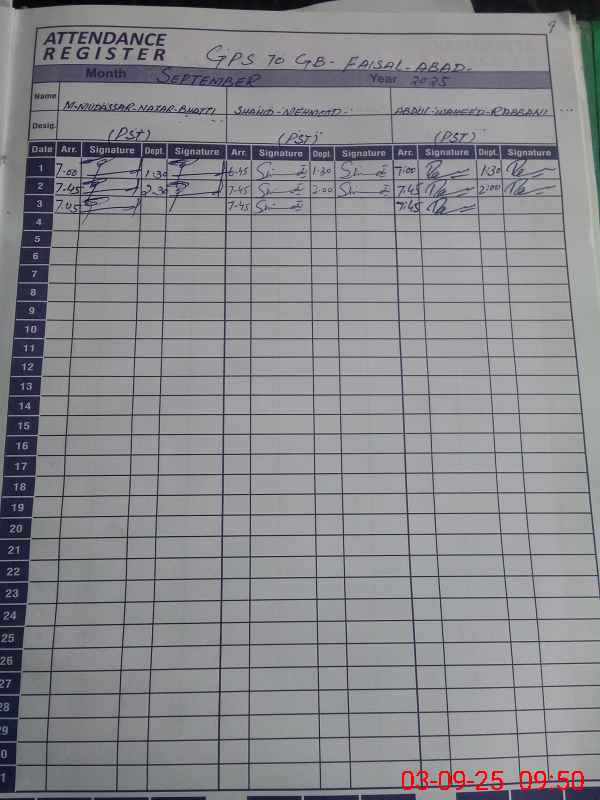 9
ATTENDANCE REGISTER GPS 70 GB- FAISAL-ABAD-
Month SEPTEMBER Year 2025
Name M-MUDASSAR-NAZAR-BHATTI SHAHID-MEHMOOD- ABDUL-WAHEED-RABBANI
Desig. (PST) (PST) (PST)
Date Arr. Signature Dept. Signature Arr. Signature Dept. Signature Arr. Signature Dept. Signature
1 7.00 1:30 6.45 1:30 7:00 1:30
2 7.45 2.30 7.45 2:00 7.45 2:00
3 7.45 7.45 7:45
4
5
6
7
8
9
10
11
12
13
14
15
16
17
18
19
20
21
22
23
24
25
26
27
28
29
0
1
03-09-25 09:50